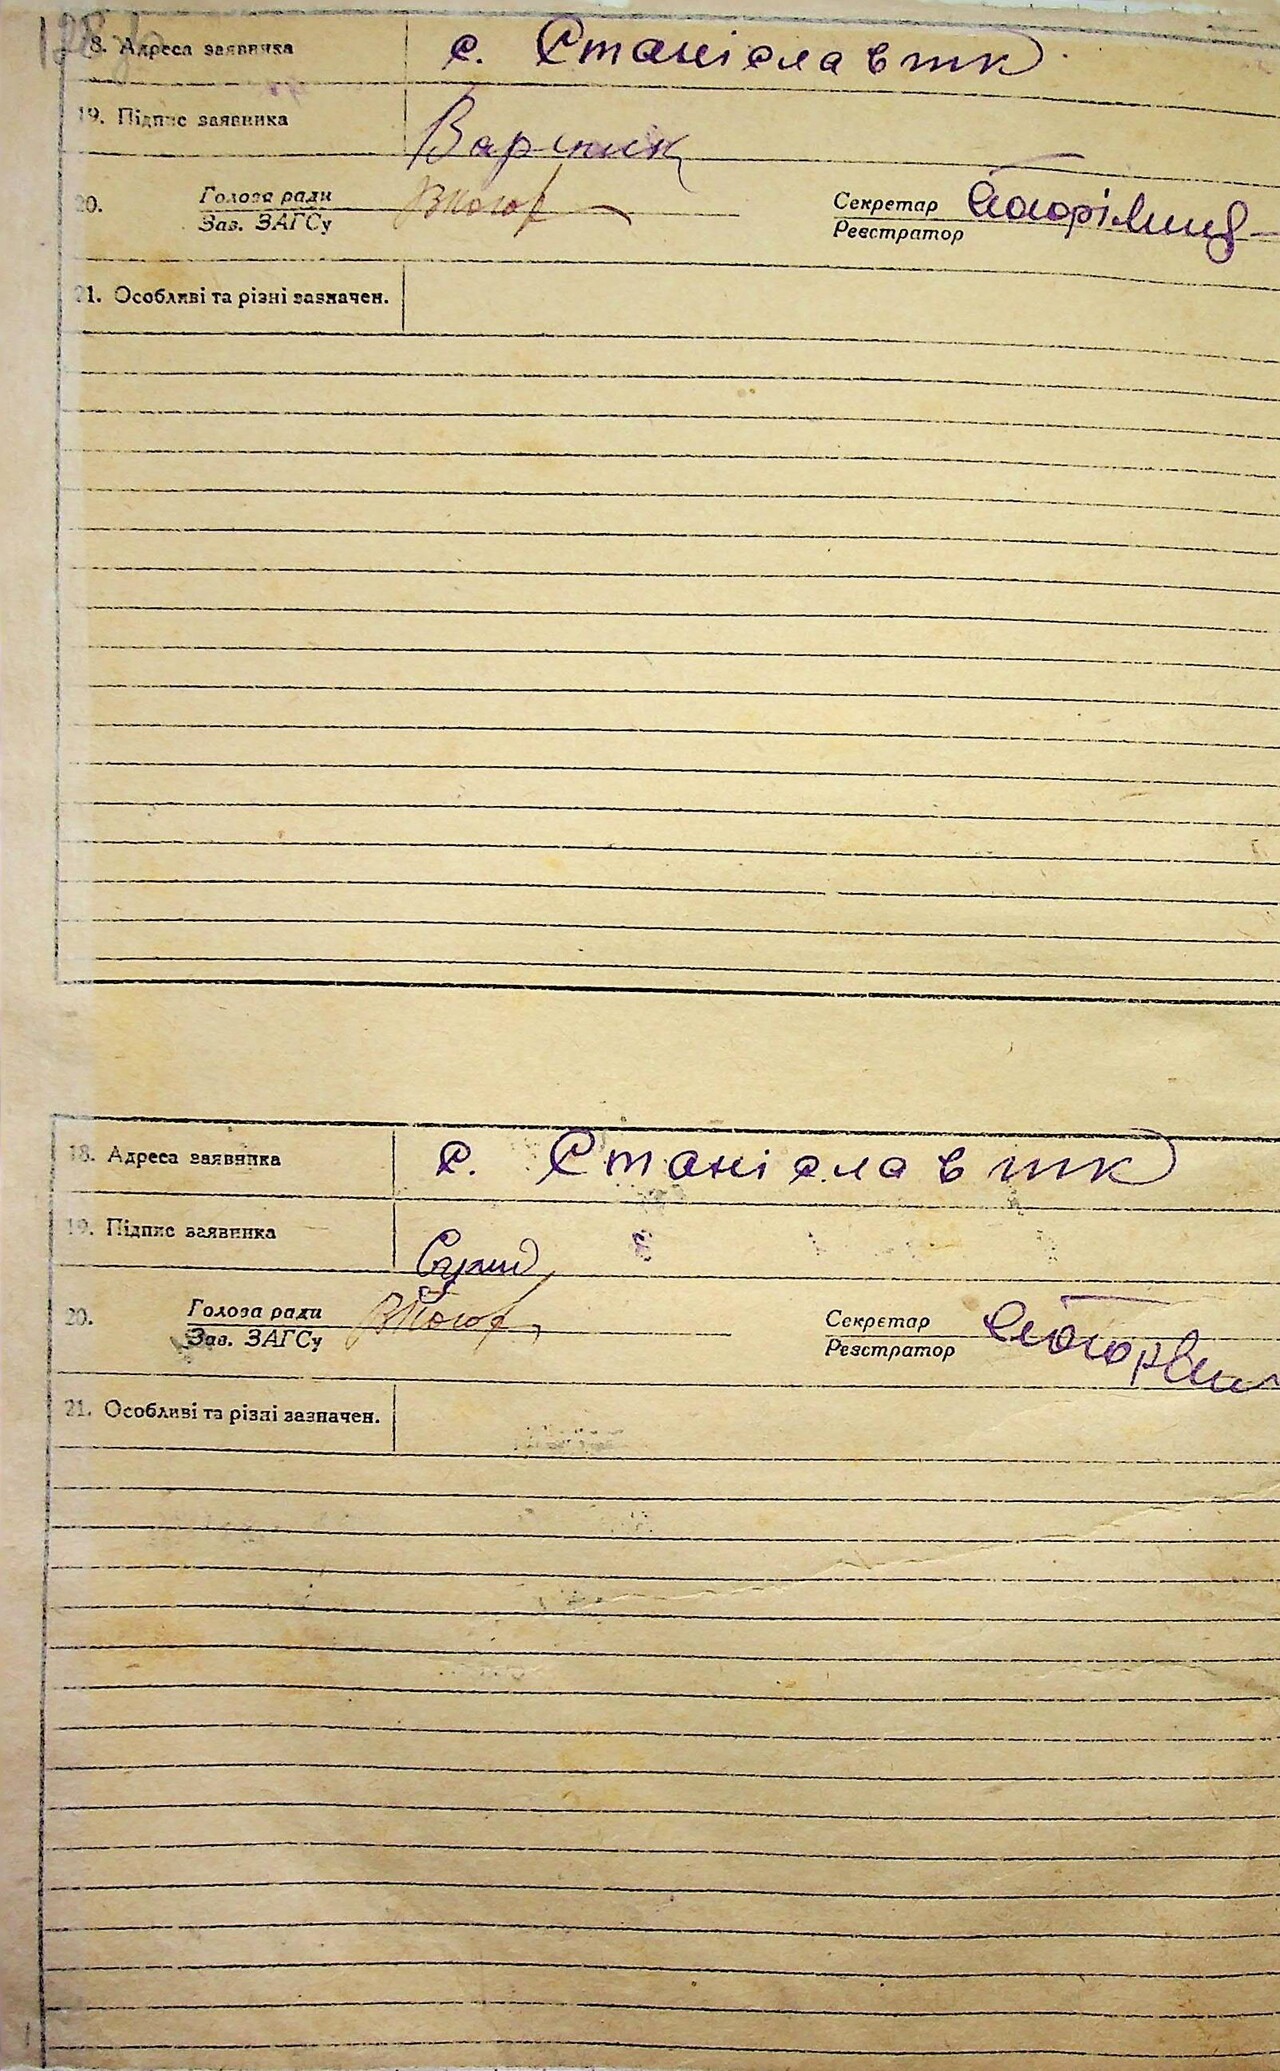 18. Адреса заявника с. Станіславтк
19. Підпис заявника Варник
20. Голова ради Секретар
Зав. ЗАГСу Реєстратор
21. Особливі та різні зазначен.
18. Адреса заявника с. Станіславтк
19. Підпис заявника
20. Голова ради Секретар
Зав. ЗАГСу Реєстратор
21. Особливі та різні зазначен.